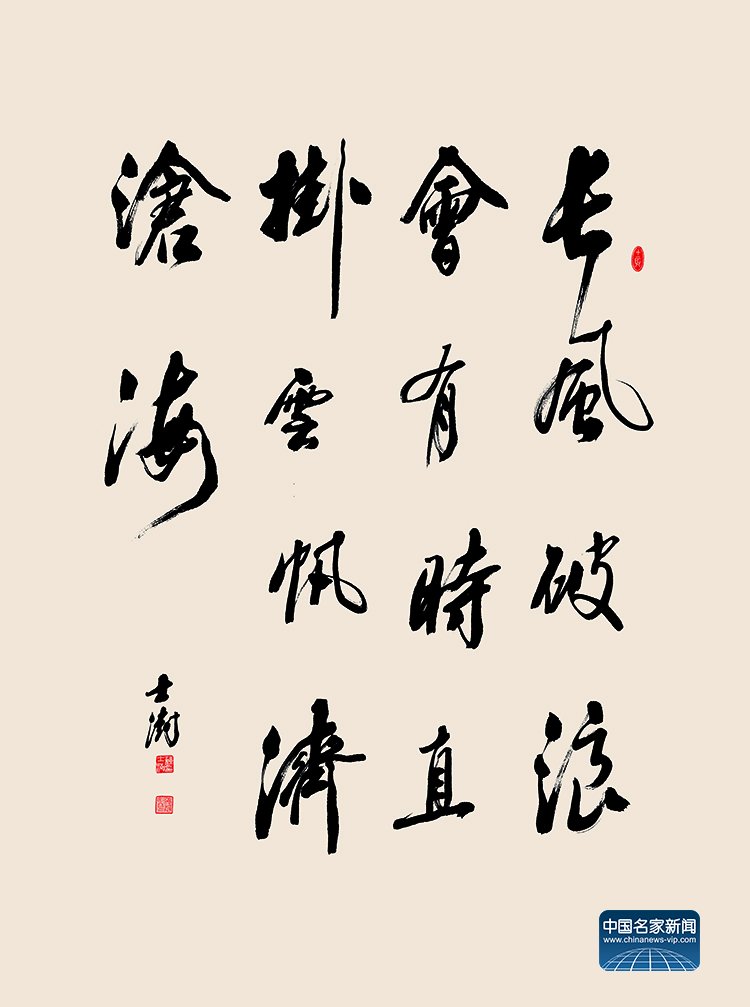 長風破浪
會有時直
掛雲帆濟
滄海
士澍
中国名家新闻
www.chinanews-vip.com